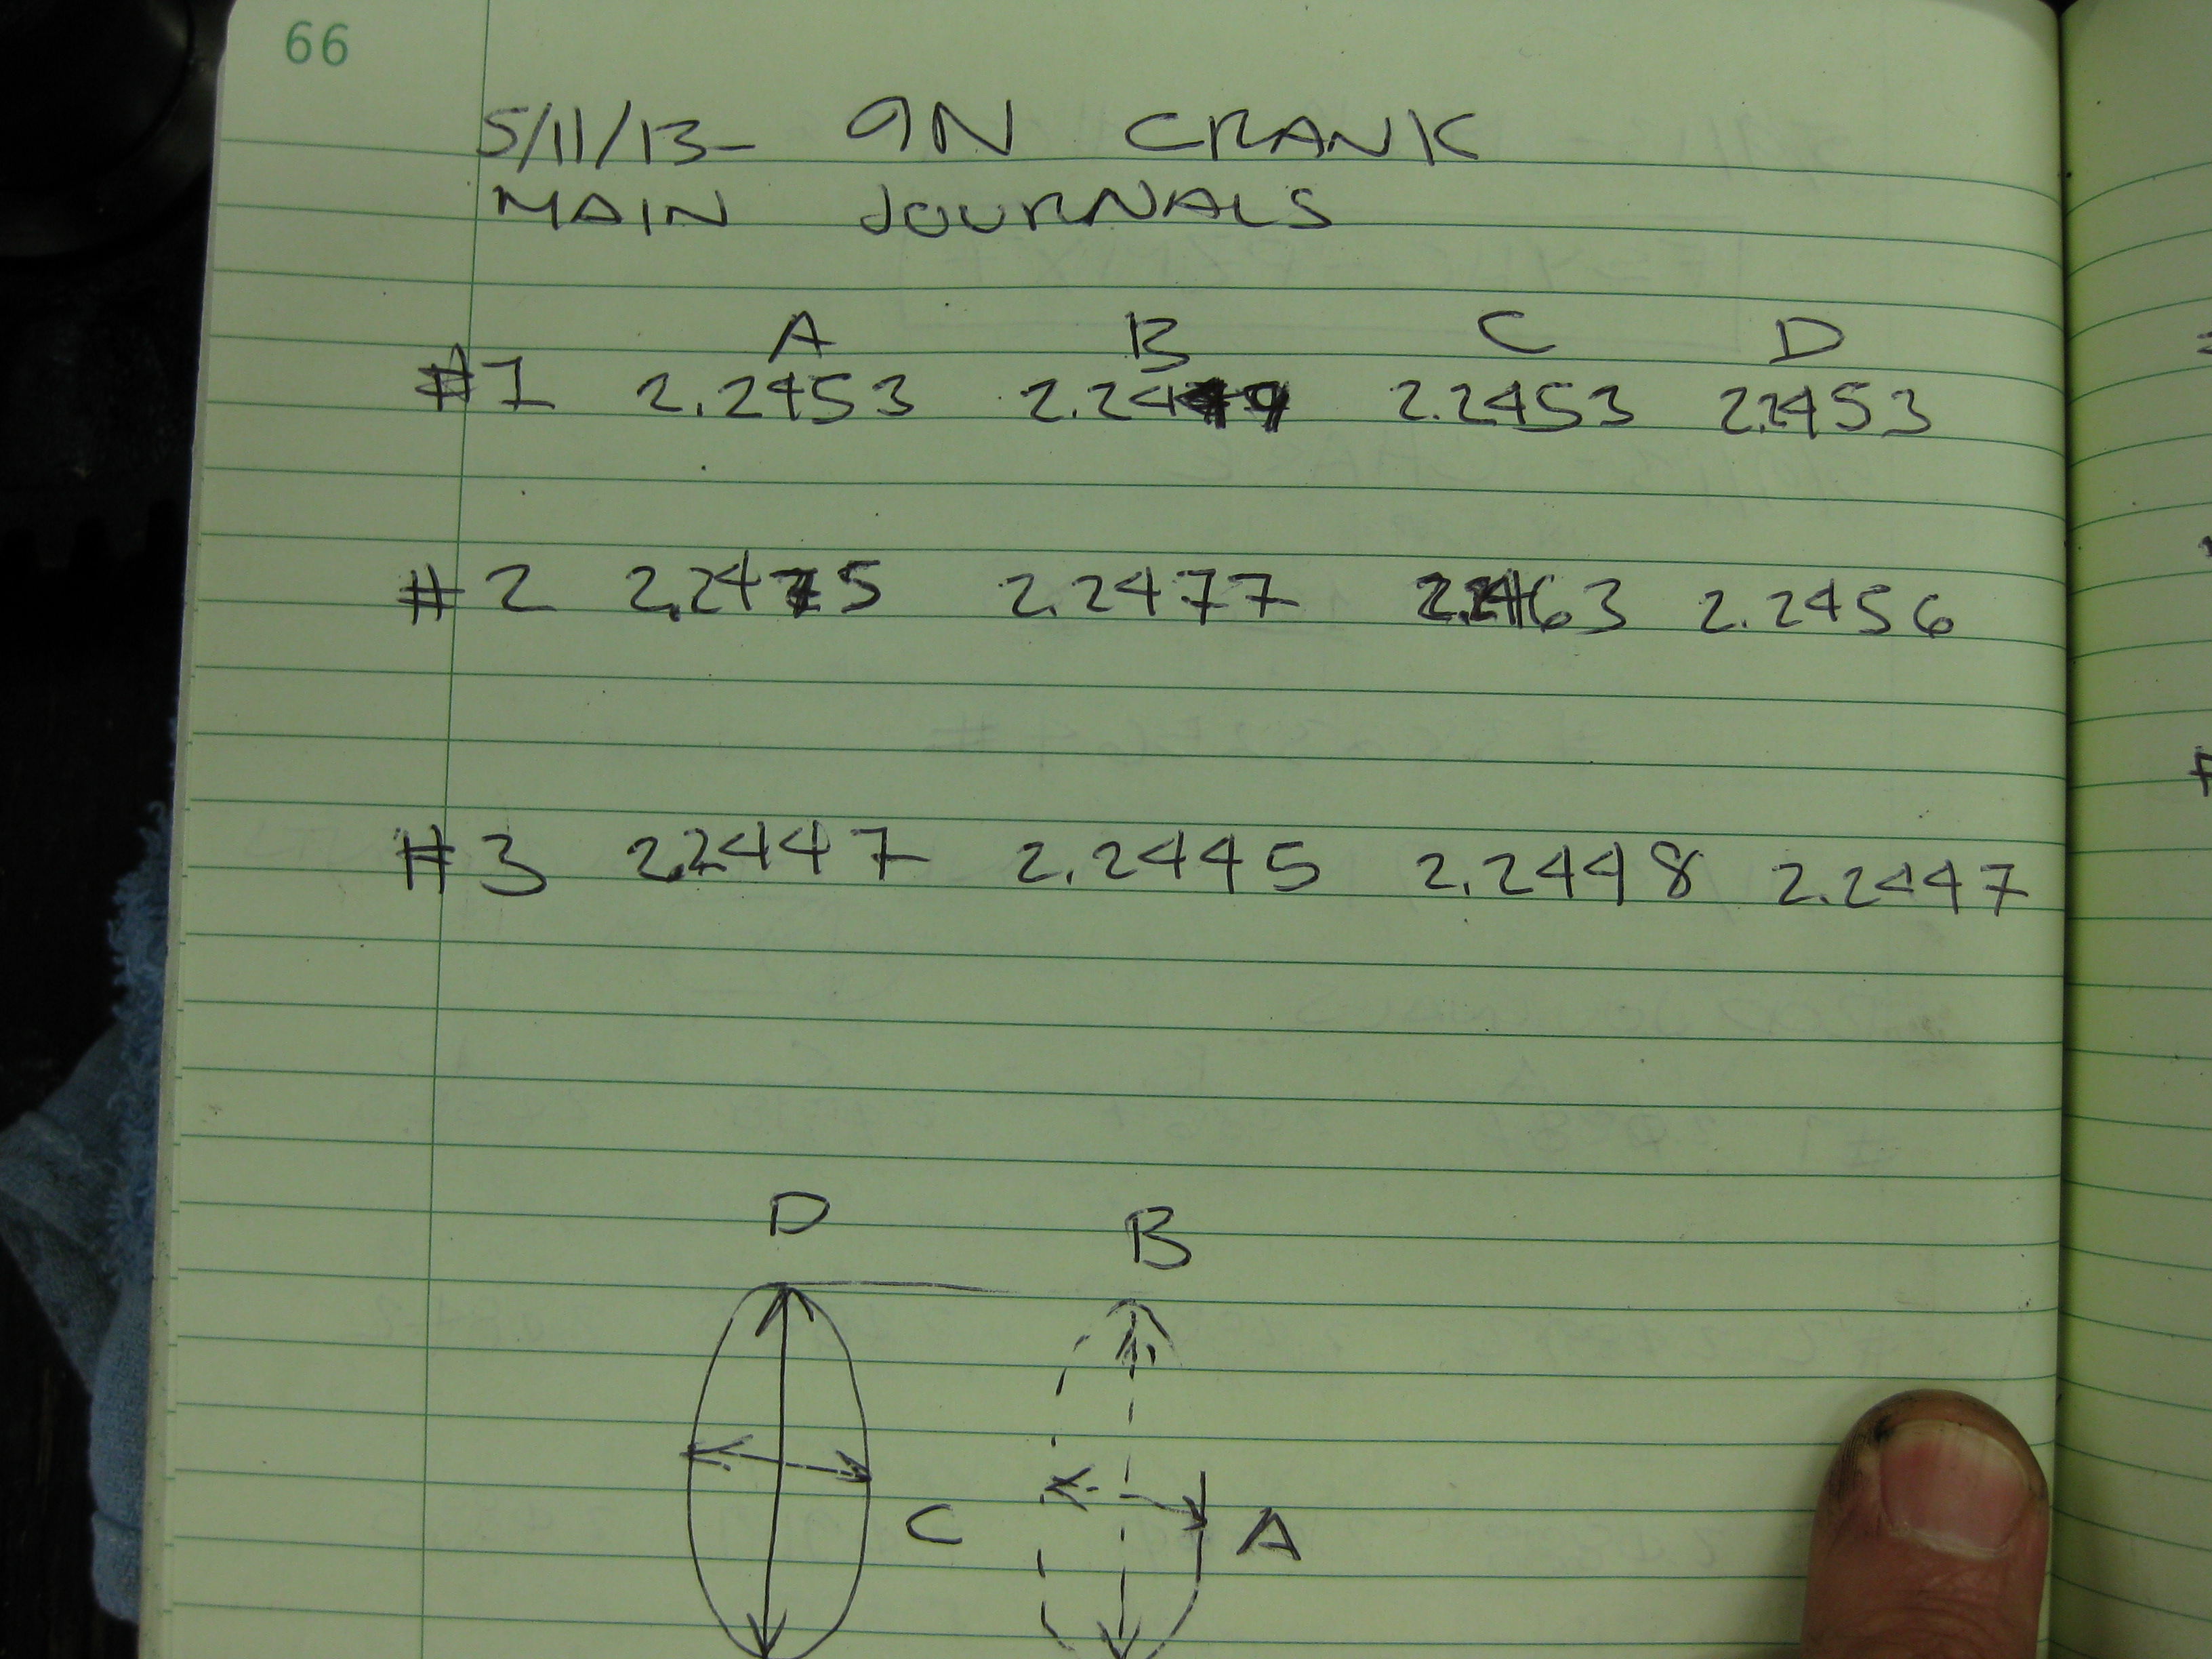 66
5/11/13- 9N CRANK
MAIN JOURNALS
A B C D
#1 2.2453 2.2449 2.2453 2.2453
#2 2.2475 2.2477 2.2463 2.2456
#3 2.2447 2.2445 2.2448 2.2447
D B
C A